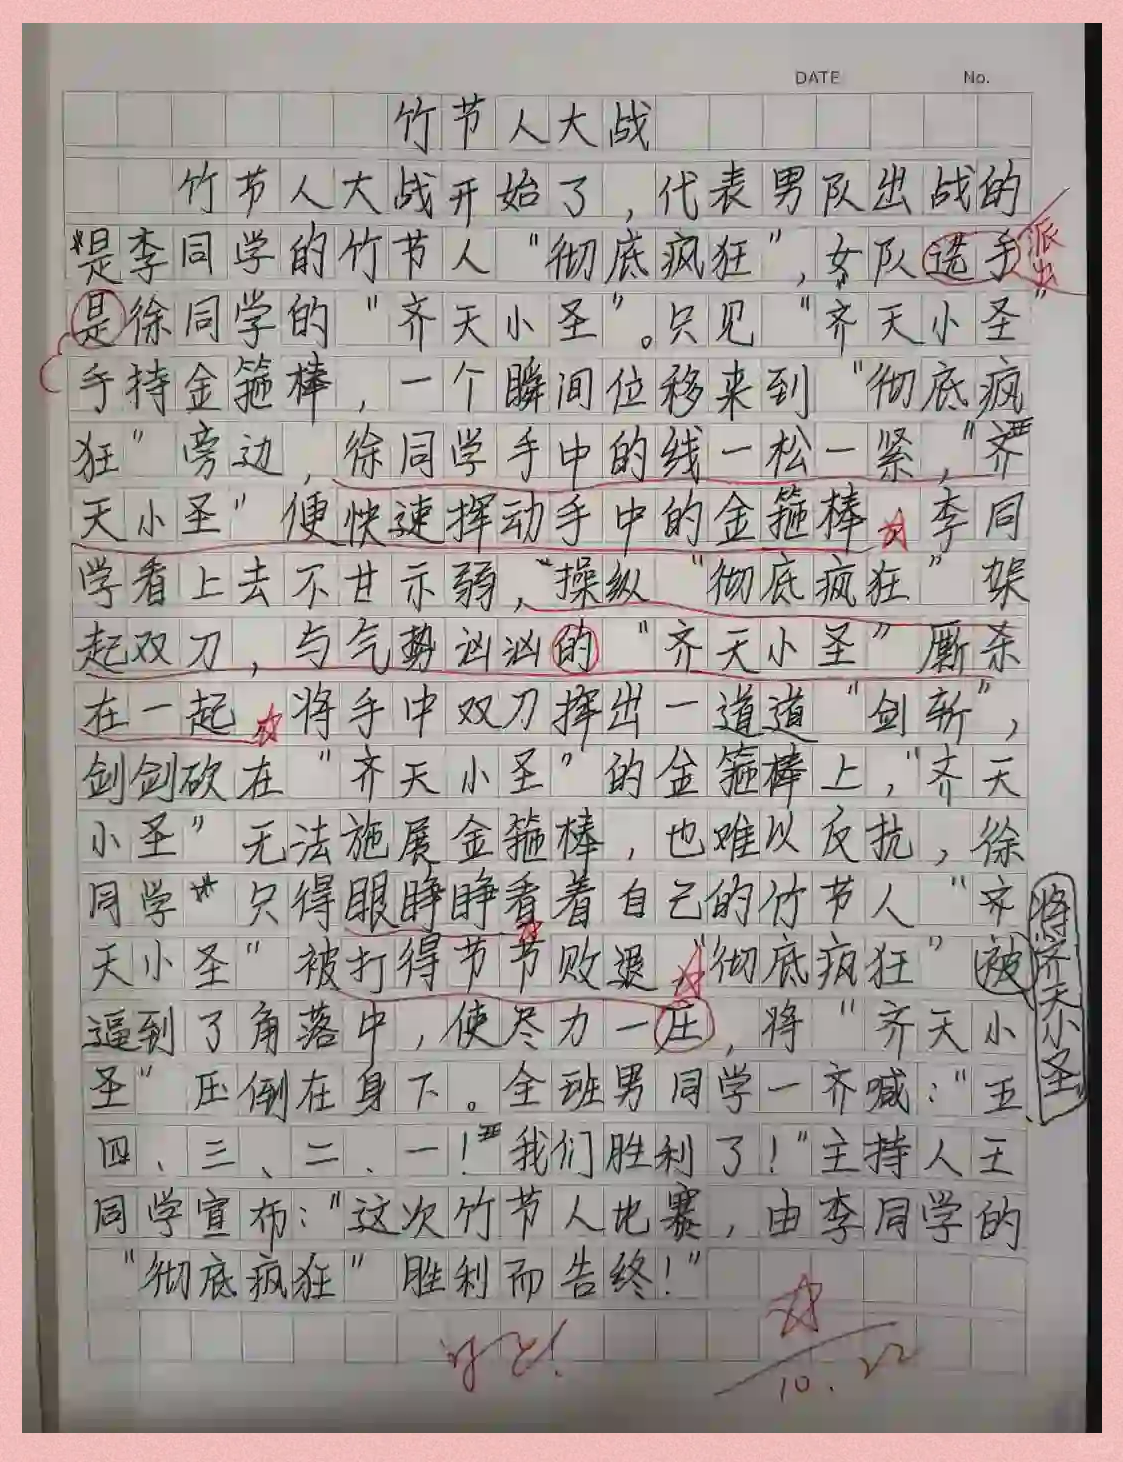 DATE No.
竹节人大战
竹节人大战开始了，代表男队出战的
是李同学的竹节人“彻底疯狂”，女队选手
派出
是徐同学的“齐天小圣”。只见“齐天小圣”
手持金箍棒，一个瞬间位移来到“彻底疯
狂”旁边，徐同学手中的线一松一紧，“齐
天小圣”便快速挥动手中的金箍棒 李同
学看上去不甘示弱，操纵“彻底疯狂”架
起双刀，与气势汹汹的“齐天小圣”厮杀
在一起 将手中双刀挥出一道道“剑斩”，
剑剑砍在“齐天小圣”的金箍棒上，“齐天
小圣”无法施展金箍棒，也难以反抗，徐
同学只得眼睁睁看着自己的竹节人“齐
天小圣”被打得节节败退 “彻底疯狂”被
将齐天小圣
逼到了角落中，使尽力一压，将“齐天小
圣”压倒在身下。全班男同学一齐喊：“五
四、三、二、一！我们胜利了！”主持人王
同学宣布：“这次竹节人比赛，由李同学的
“彻底疯狂”胜利而告终！”
10.22